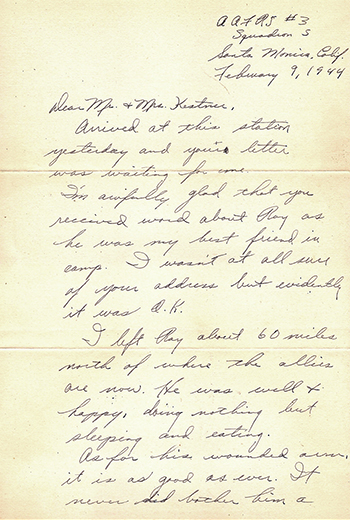 A A F R S #3
Squadron S
Santa Monica, Calif.
February 9, 1944
Dear Mr. & Mrs. Kestner,
Arrived at this station
yesterday and your letter
was waiting for me.
I'm awfully glad that you
received word about Ray as
he was my best friend in
camp. I wasn't at all sure
of your address but evidently
it was O.K.
I left Ray about 60 miles
north of where the allies
are now. He was well &
happy, doing nothing but
sleeping and eating.
As for his wounded arm,
it is as good as ever. It
never did bother him a